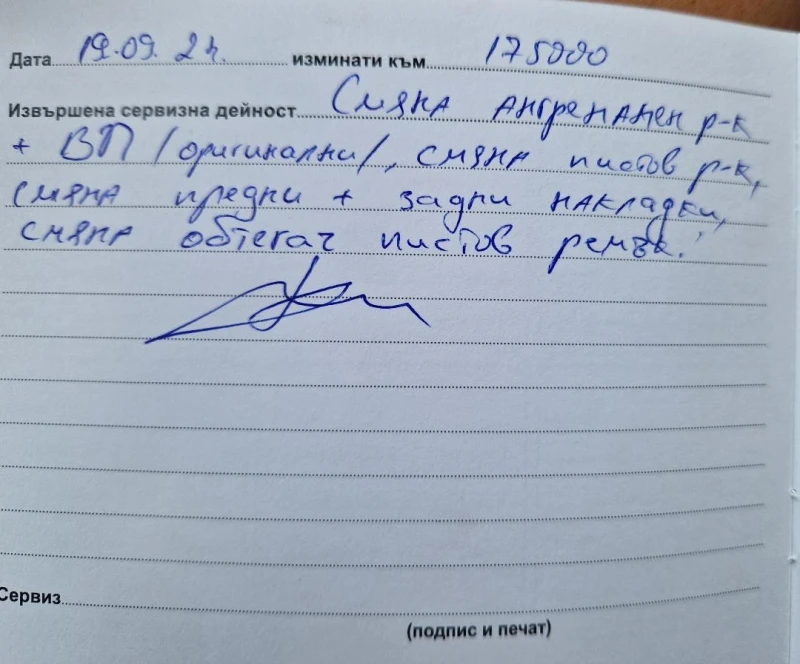 Дата 19.09.24. изминати към 175000
Извършена сервизна дейност Смяна ангренажен р-к
+ ВП /оригинални/, смяна пистов р-к,
смяна предни + задни накладки,
смяна обтегач пистов ремък.
Сервиз
(подпис и печат)